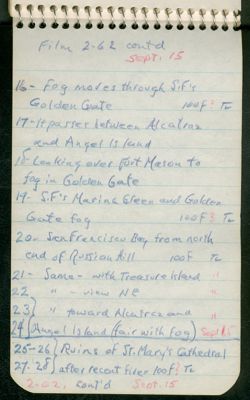 Film 2-62 cont'd
Sept. 15
16- Fog moves through S.F.'s
Golden Gate 100F? Tr
17- It passes between Alcatraz
and Angel Island
18- Looking over Fort Mason to
fog in Golden Gate
19- S.F.'s Marina Green and Golden
Gate fog 100F? Tr
20- San Francisco Bay from north
end of Russian Hill 100F Tr
21- Same - with Treasure Island "
22 " - view NE "
23} " toward Alcatraz and "
24} Angel Island (fair with fog) Sept 15
25-26} Ruins of St. Mary's Cathedral
27-28} after recent fire 100F? Tr
2-62, cont'd Sept. 15